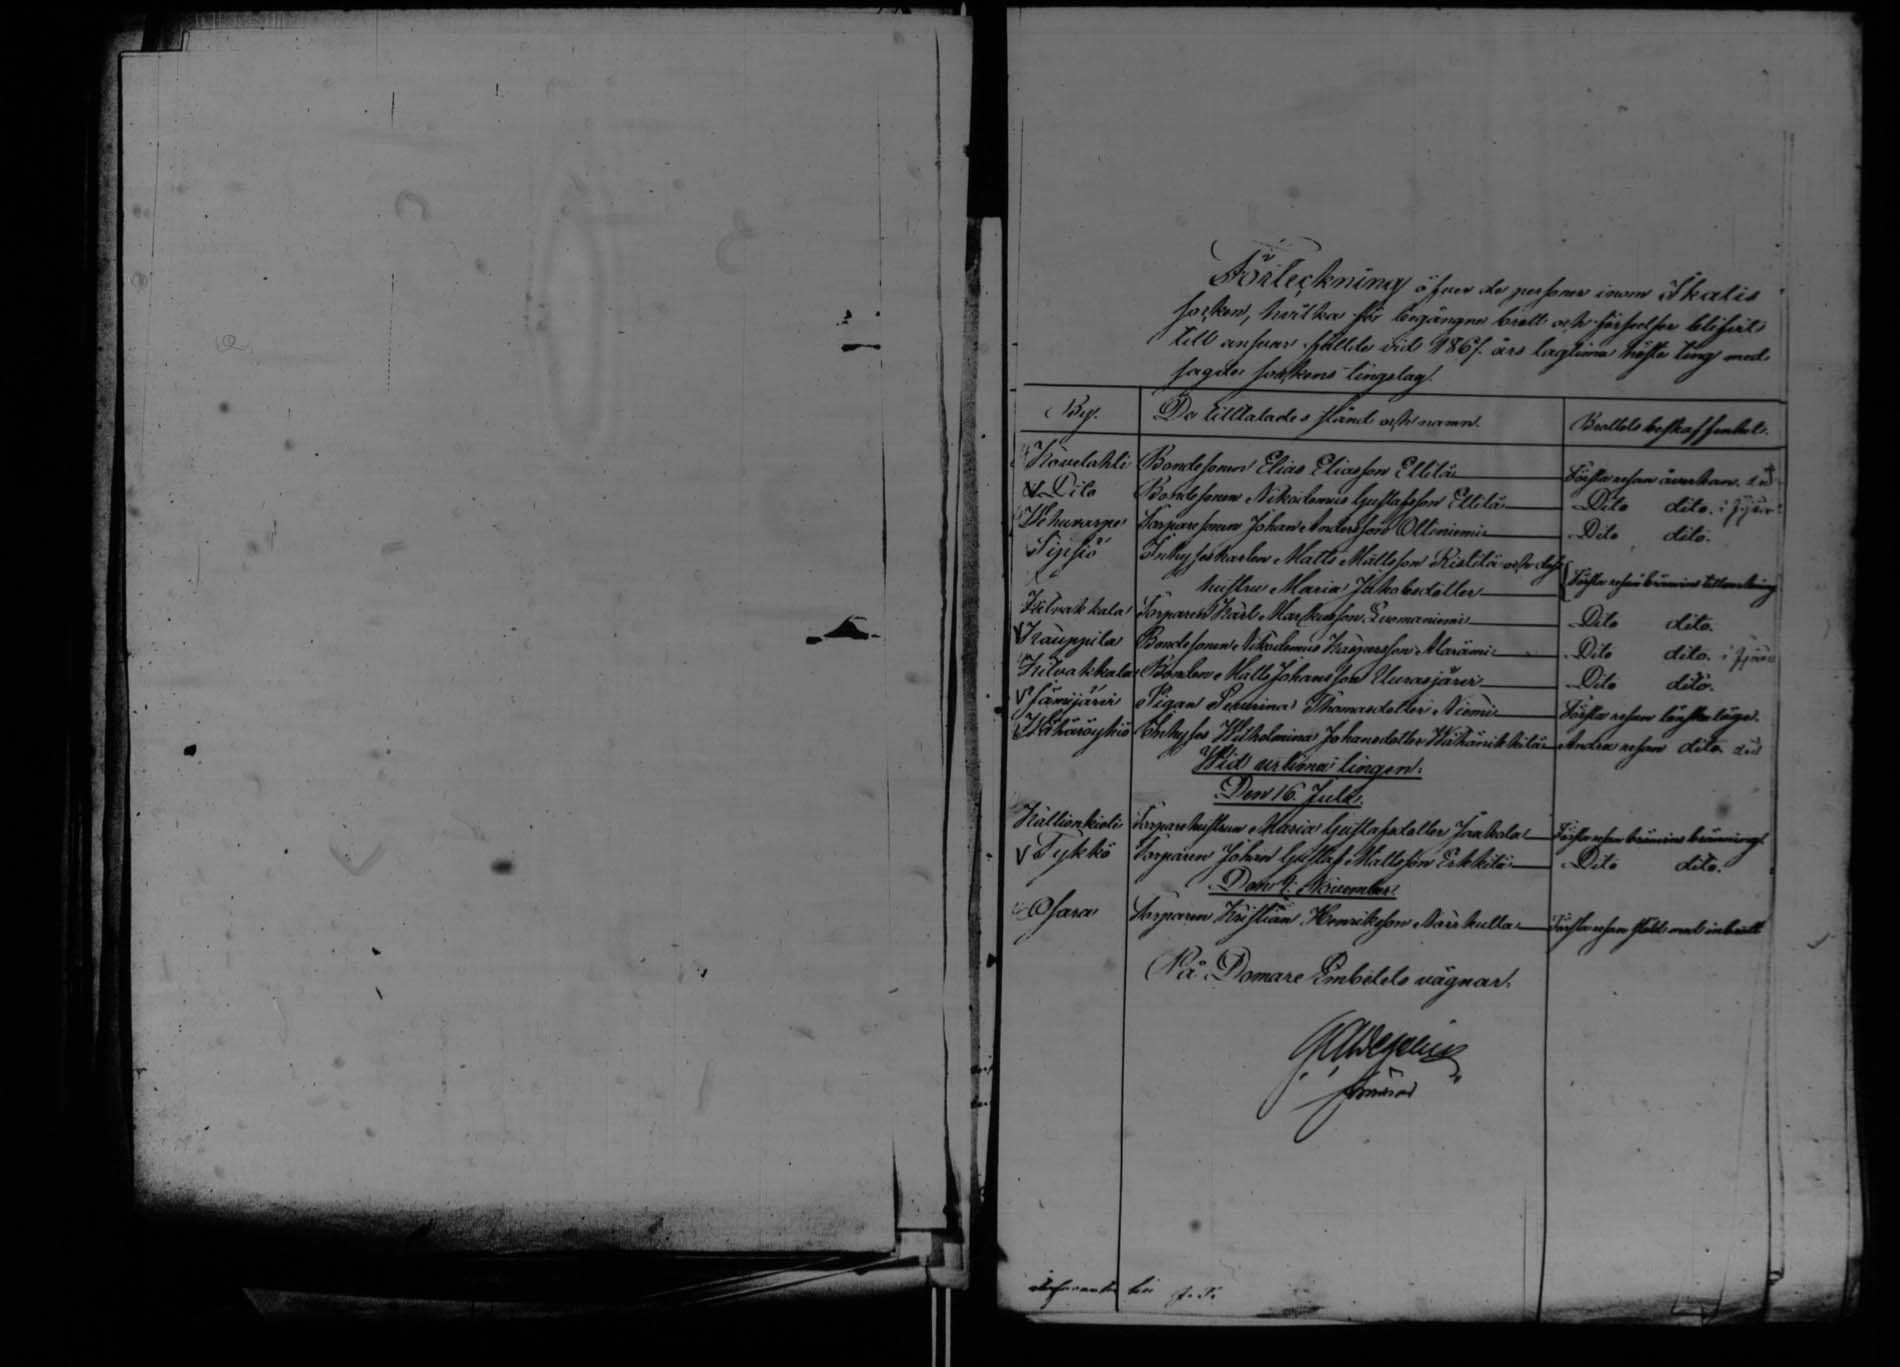 Förteckning öfver de personer inom Ikalis
socken, hvilka för begångne brott och förseelser blifvit
till ansvar fällde vid 1867 års lagtima höste ting med
sagde sockens tingslag.
By. De tilltalades stånd och namn. Brottets beskaffenhet.
Kovelahti Bondesonen Elias Eliasson Ellilä Första resan åverkan.
Dito Bondesonen Nikodemus Gustafsson Ellilä Dito dito.
Wehuvarpe Torparesonen Johan Andersson Olliniemi Dito dito.
Sipsiö Inhyseskarlen Matts Mattsson Ristilä och dess
hustru Maria Jakobsdotter Första resan bränvins tillverkning
Kilvakkala Torparen Karl Markusson Luomaniemi Dito dito.
Kauppila Bondesonen Nikodemus Kaspersson Alarämi Dito dito.
Kilvakkala Bonden Matts Johansson Uurasjärvi Dito dito.
Jämijärvi Pigan Serafina Thomasdotter Niemi Första resan lönskaläge.
Wähäröyhiö Inhyses Wilhelmina Johansdotter Wähänikkilä Andra resan dito.
Wid urtima tingen.
Den 16. Juli.
Kallionkieli Torparehustrun Maria Gustafsdotter Jaakola Första resan bränvins bränning.
Tykkö Torparen Johan Gustaf Mattsson Erkkilä Dito dito.
Den 9. November.
Osara Torparen Kristian Henriksson Första resan stöld med inbrott
På Domare Embetets vägnar.